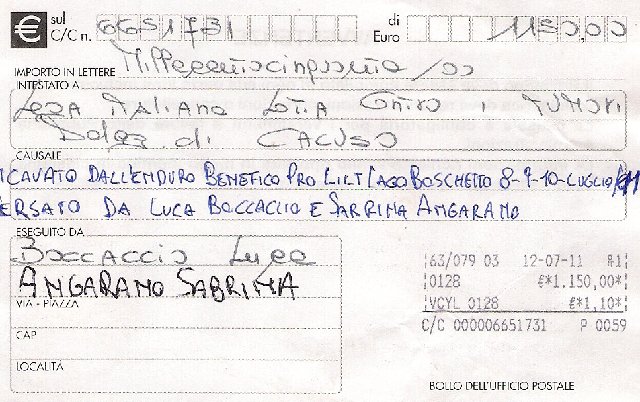 € sul C/C n. 6651731 di Euro 1150,00
IMPORTO IN LETTERE Millecentocinquanta/00
INTESTATO A
Lega Italiana Lotta Contro i TUMORI
di CALUSO
CAUSALE
RICAVATO DALL'ENDURO BENEFICO PRO LILT LAGO BOSCHETTO 8-9-10-LUGLIO/2011
VERSATO DA LUCA BOCCACCIO E SABRINA ANGARANO
ESEGUITO DA
Boccaccio Luca
ANGARANO SABRINA
VIA - PIAZZA
CAP
LOCALITÀ
63/079 03 12-07-11 R1
0128 €*1.150,00*
VCYL 0128 €*1,10*
C/C 000006651731 P 0059
BOLLO DELL'UFFICIO POSTALE